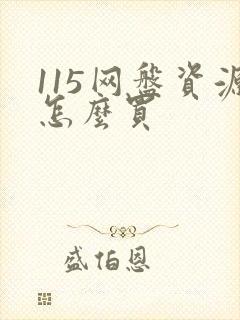 115网盘資源
怎麼買
盛怕恩